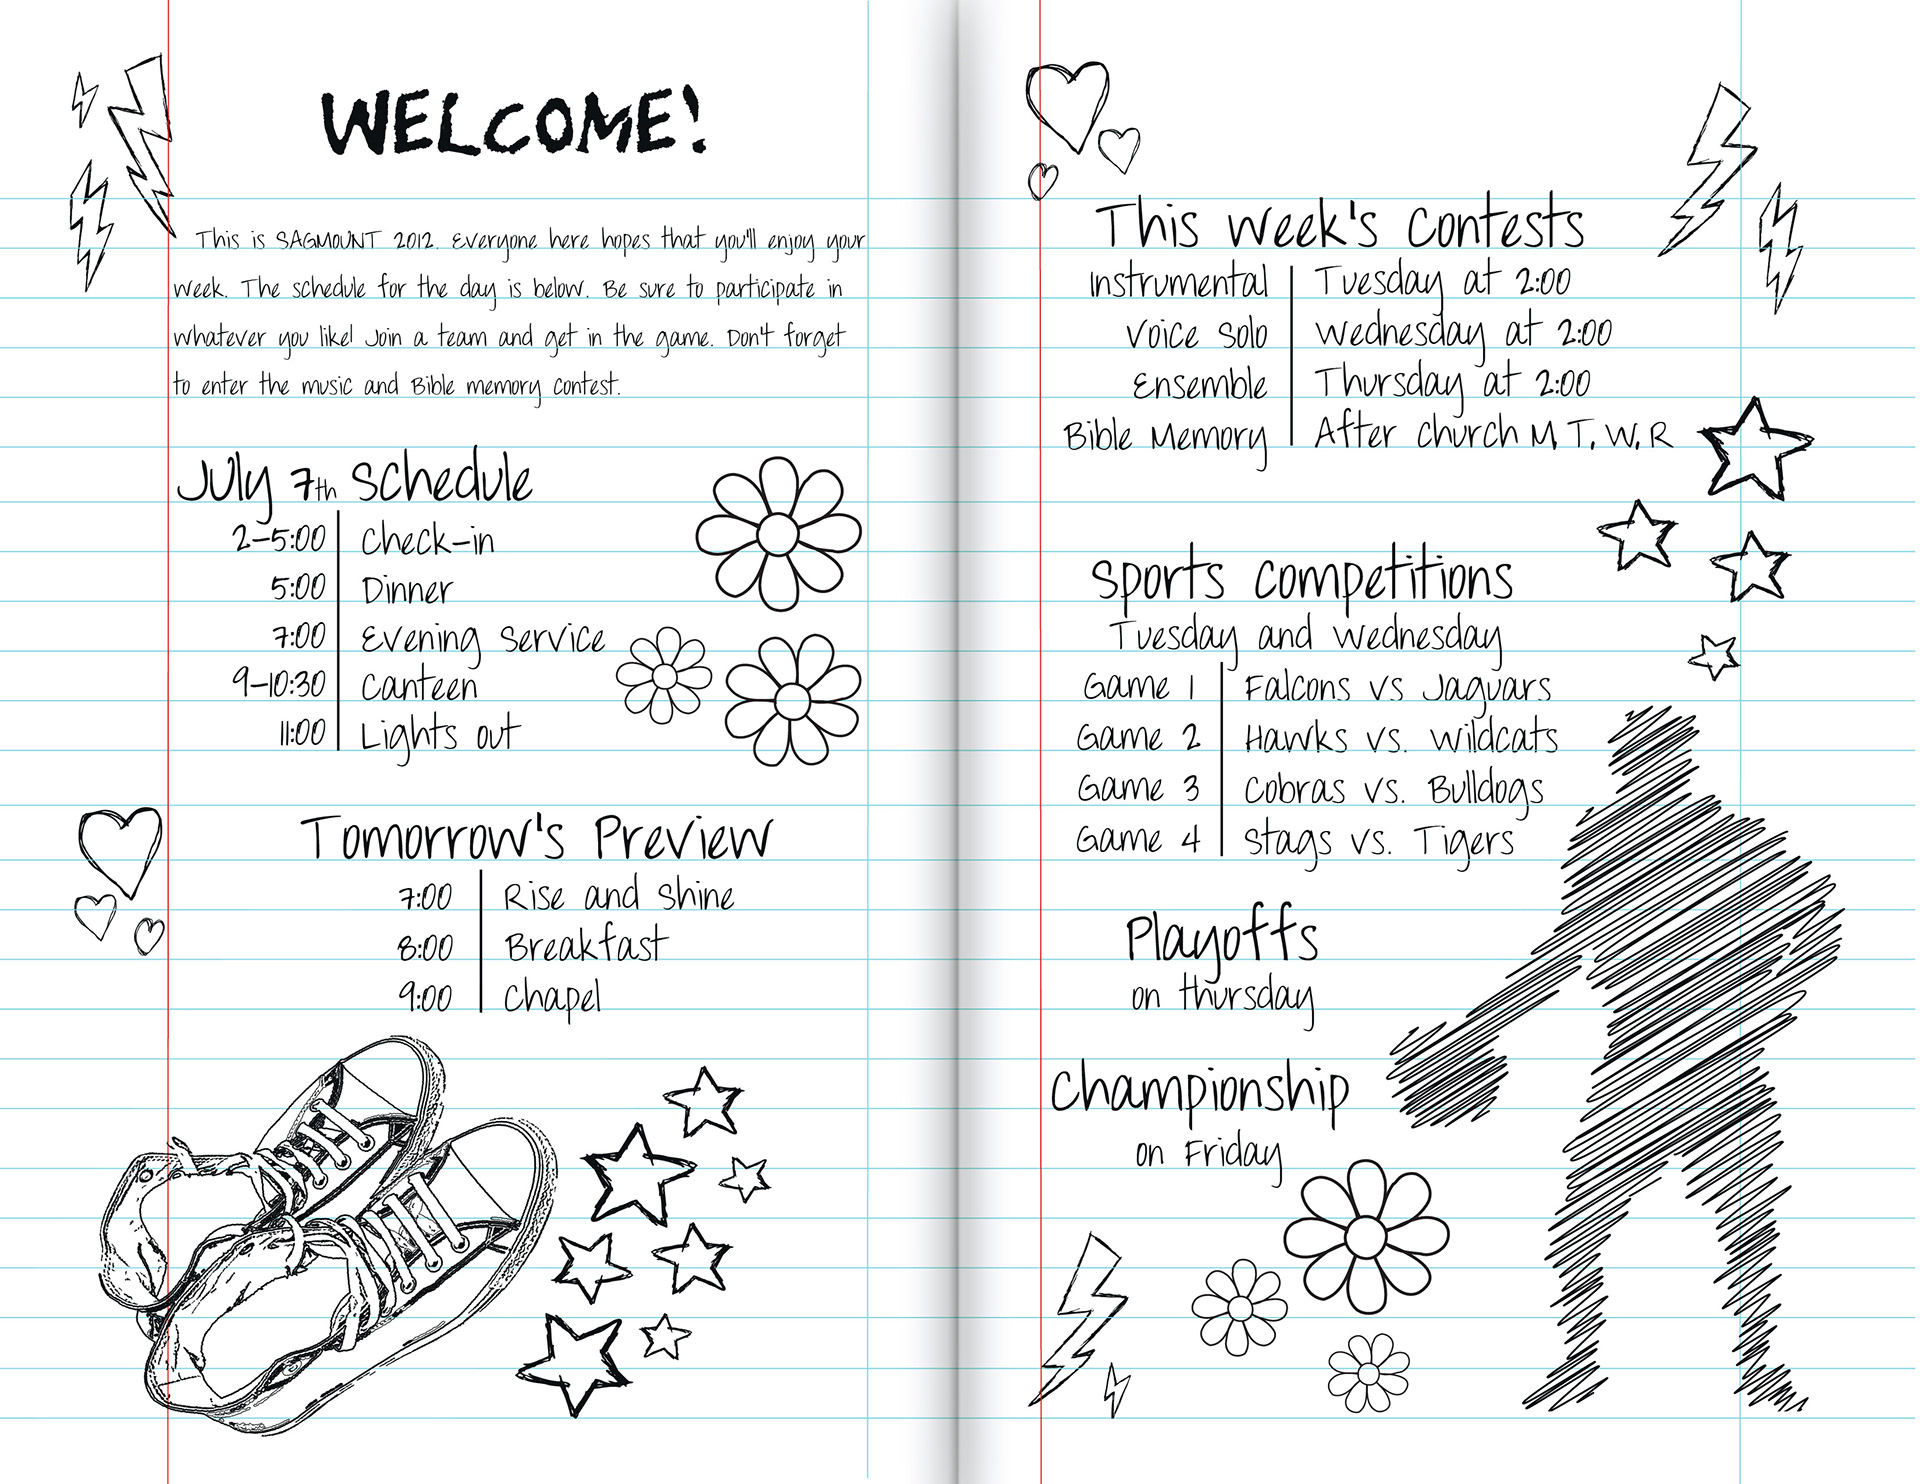 WELCOME!
This is SAGMOUNT 2012. Everyone here hopes that you'll enjoy your
week. The schedule for the day is below. Be sure to participate in
whatever you like! Join a team and get in the game. Don't forget
to enter the music and Bible memory contest.
July 7th Schedule
2-5:00 Check-in
5:00 Dinner
7:00 Evening Service
9-10:30 Canteen
11:00 Lights out
Tomorrow's Preview
7:00 Rise and Shine
8:00 Breakfast
9:00 Chapel
This Week's Contests
Instrumental Tuesday at 2:00
Voice Solo Wednesday at 2:00
Ensemble Thursday at 2:00
Bible Memory After Church M, T, W, R
Sports Competitions
Tuesday and Wednesday
Game 1 Falcons vs Jaguars
Game 2 Hawks vs. Wildcats
Game 3 Cobras vs. Bulldogs
Game 4 Stags vs. Tigers
Playoffs
on Thursday
Championship
on Friday